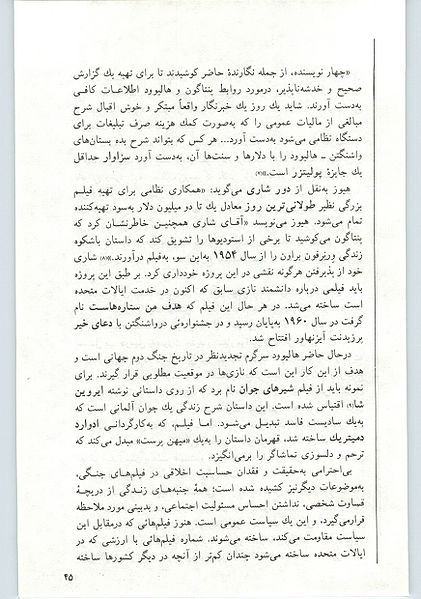 «چهار نویسنده، از جمله نگارندهٔ حاضر کوشیدند تا برای تهیه یك گزارش
صحیح و خدشه‌ناپذیر، درمورد روابط پنتاگون و هالیوود اطلاعات کافی
به‌دست آورند. شاید یك روز یك خبرنگار واقعاً مبتکر و خوش اقبال شرح
مبالغی از مالیات عمومی را که به‌صورت کمك هزینه صرف تبلیغات برای
دستگاه نظامی می‌شود به‌دست آورد... هر کس که بتواند شرح بده بستان‌های
واشنگتن ـ هالیوود را با دلارها و سنت‌ها آن، به‌دست آورد سزاوار حداقل
یك جایزهٔ پولیتزر است.»(۷)
هیوز به‌نقل از دور شاری می‌گوید: «همکاری نظامی برای تهیه فیلم
بزرگی نظیر طولانی‌ترین روز معادل یك تا دو میلیون دلار به‌سود تهیه‌کننده
تمام می‌شود. هیوز می‌نویسد «آقای شاری همچنین خاطرنشان کرد که
پنتاگون می‌کوشید تا برخی از استودیوها را تشویق کند که داستان باشکوه
زندگی ورنرفون براون را از سال ۱۹۵۴ به‌این سو، به‌فیلم درآورند.»(۸) شاری
خود از پذیرفتن هرگونه نقشی در این پروژه خودداری کرد. بر طبق این پروژه
باید فیلمی درباره دانشمند نازی سابق که اکنون در خدمت ایالات متحده
است ساخته می‌شد. در هر حال این فیلم که هدف من ستاره‌هاست نام
گرفت در سال ۱۹۶۰ به‌پایان رسید و در جشنواره‌ئی درواشنگتن با دعای خیر
پرزیدنت آیزنهاور افتتاح شد.
درحال حاضر هالیوود سرگرم تجدیدنظر در تاریخ جنگ دوم جهانی است و
هدف از این کار این است که نازی‌ها در موقعیت مطلوبی قرار گیرند. برای
نمونه باید از فیلم شیرهای جوان نام برد که از روی داستانی نوشته ایروین
شا(۹) اقتباس شده است. این داستان شرح زندگی یك جوان آلمانی است که
به‌یك سادیست فاسد تبدیل می‌شود. اما فیلم، که به‌کارگردانی ادوارد
دمیتریك ساخته شد، قهرمان داستان را به‌یك «میهن پرست» مبدل می‌کند که
ترحم و دلسوزی تماشاگر را برمی‌انگیزد.
بی‌احترامی به‌حقیقت و فقدان حساسیت اخلاقی در فیلم‌های جنگی،
به‌موضوعات دیگرنیز کشیده شده است؛ همهٔ جنبه‌های زندگی از دریچهٔ
قساوت شخصی، نداشتن احساس مسئولیت اجتماعی، و بدبینی مورد ملاحظه
قرارمی‌گیرد، و این یك سیاست عمومی است. هنوز فیلم‌هائی که درمقابل این
سیاست مقاومت می‌کند، ساخته می‌شوند. شماره فیلم‌هائی با ارزشی که در
ایالات متحده ساخته می‌شود چندان کم‌تر از آنچه در دیگر کشورها ساخته
۴۵